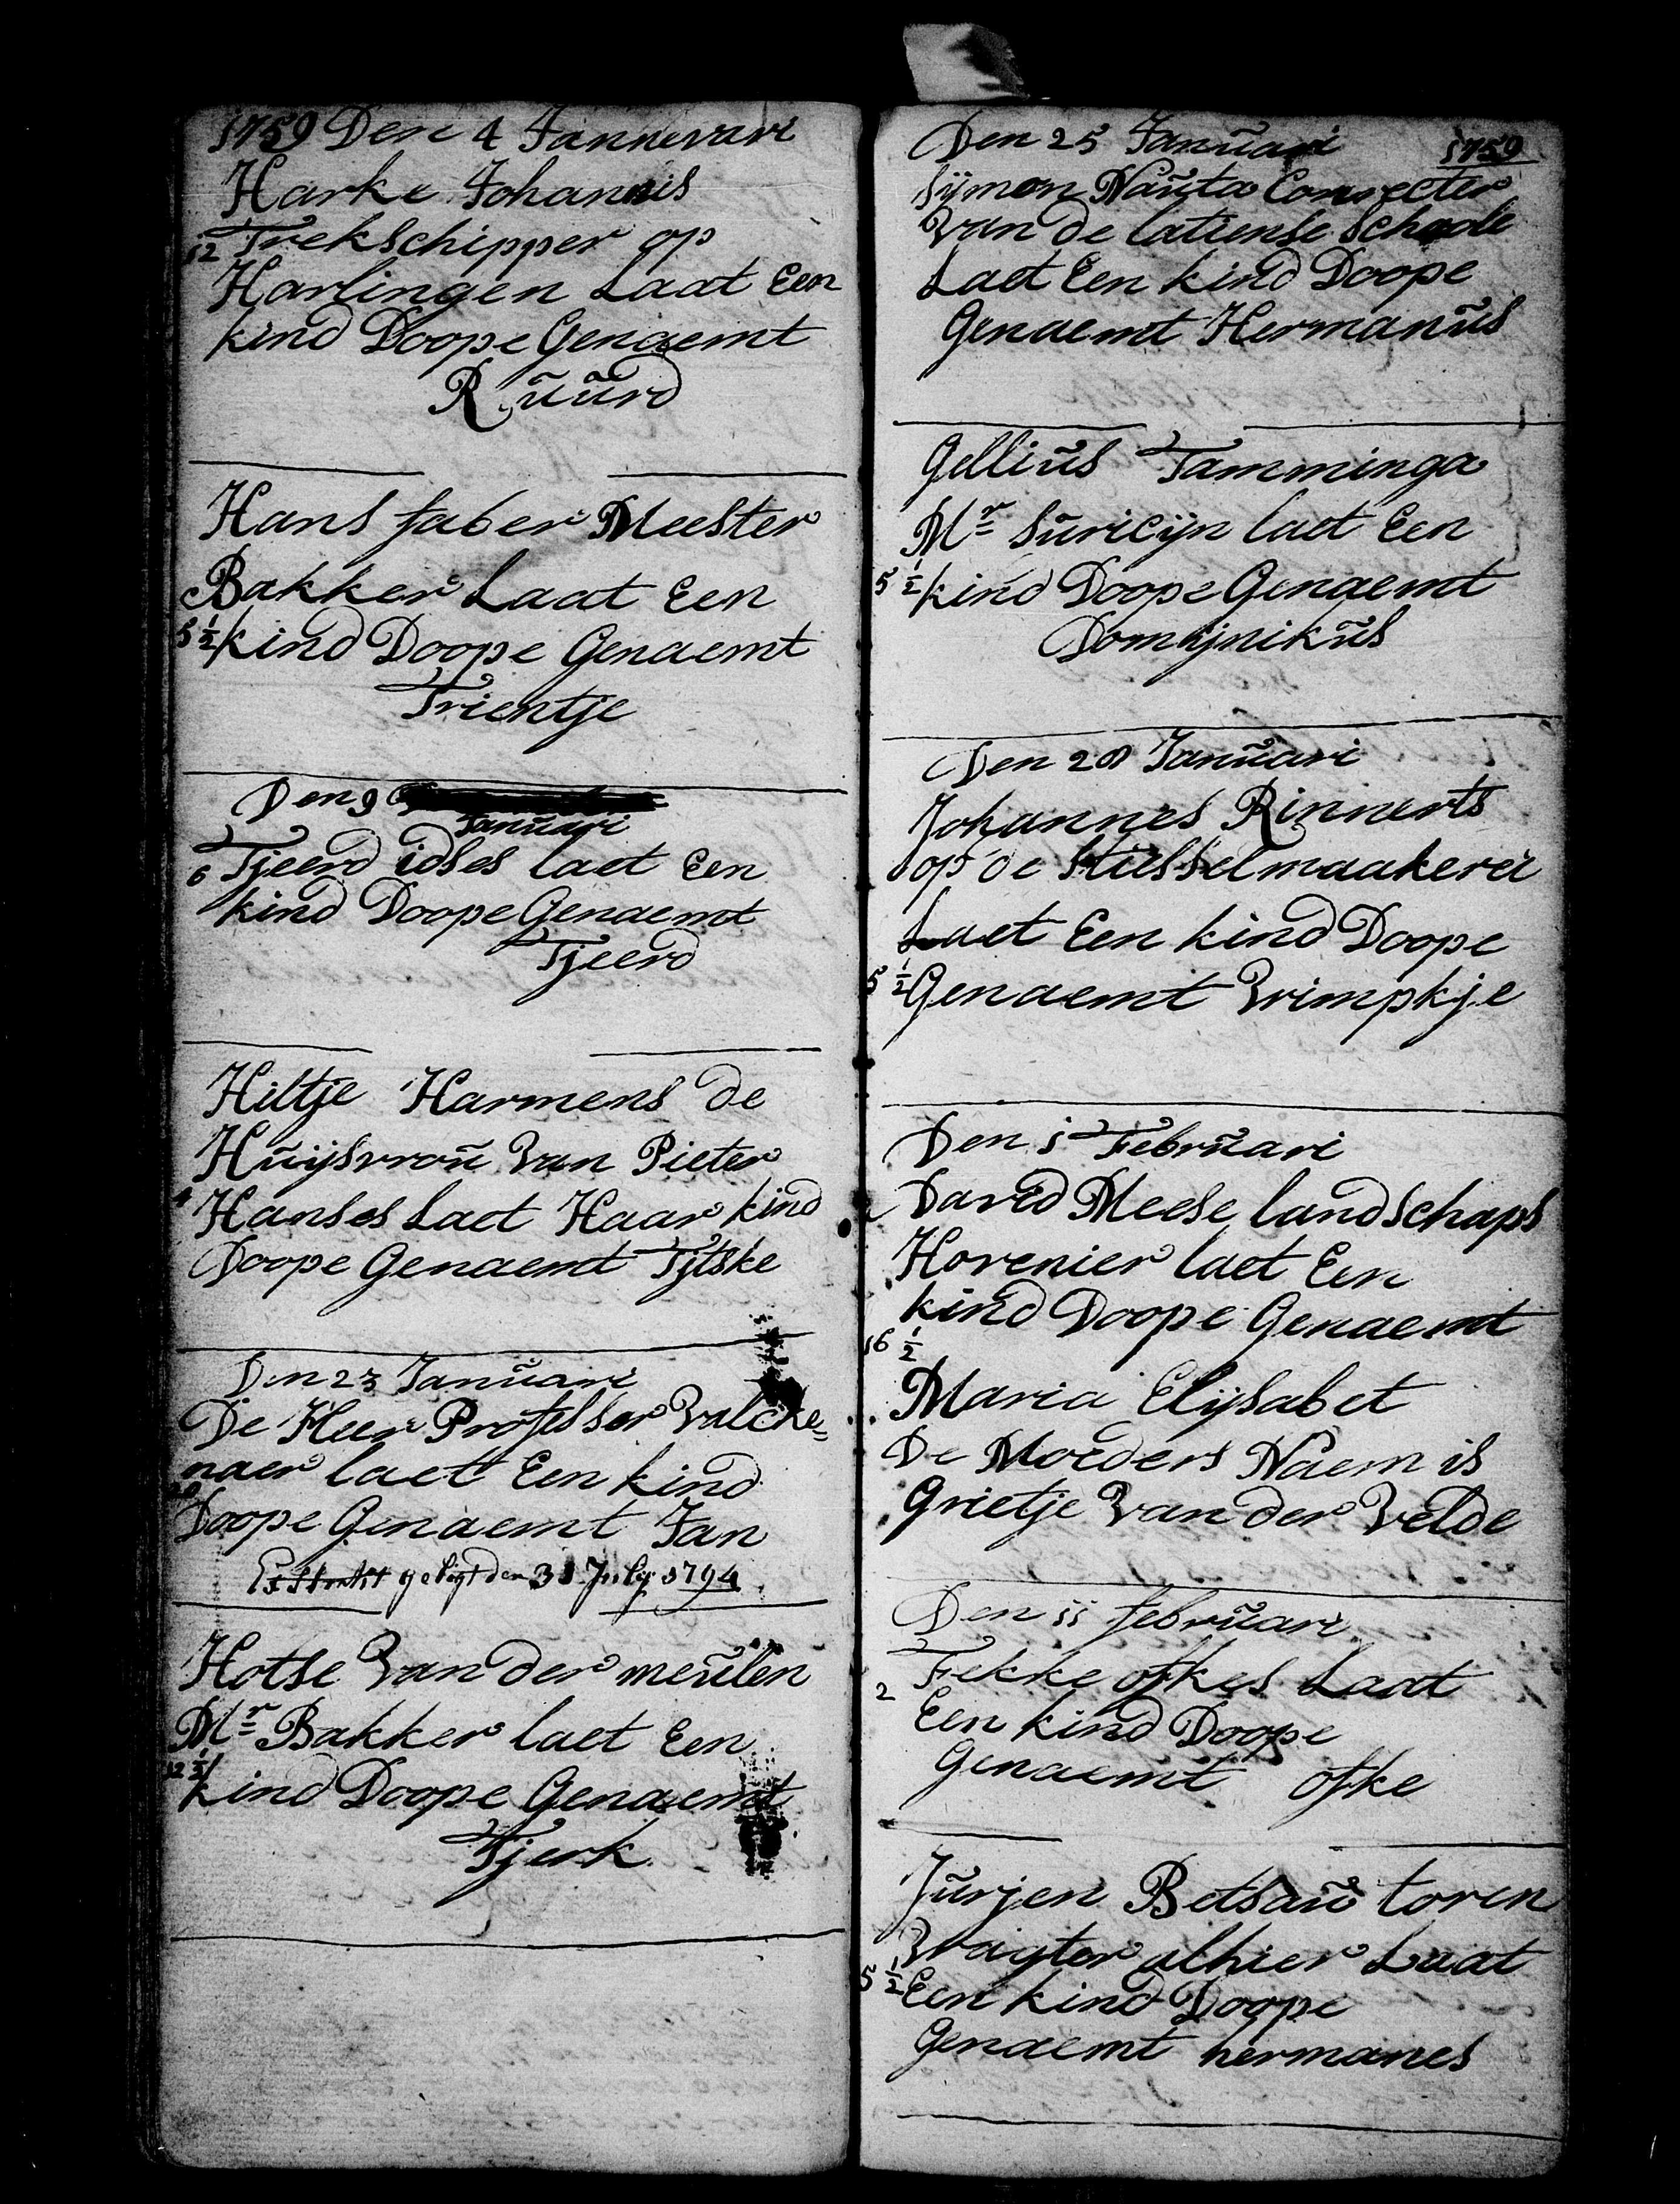 1759 Den 4 Jannevari
Harke Johannis
12 Trekschipper op
Harlingen Laat Een
kind Doope Genaemt
Ruŭrd
Hans faber Meester
Bakker Laat Een
5 1/2 kind Doope Genaemt
Trientje
Den 9
Janŭari
6 Tjeerd idses laet Een
kind Doope Genaemt
Tjeerd
Hiltje Harmens de
Hŭijsvroŭ Van Pieter
4 Hanses Laet Haar kind
Doope Genaemt Tjtske
Den 23 Janŭari
De Heer Professor Valcke=
naer laet Een kind
Doope Genaemt Jan
Extrakt geligt den 31 July 1794
Hotse Van der meŭlen
Mr Bakker laet Een
12 1/2 kind Doope Genaemt
Tjerk
Den 25 Janŭari 1759
Sijmon Naŭta Conrecter
Van de latiense Schoole
Laet Een kind Doope
Genaemt Hermanŭs
Gelliŭs Tamminga
Mr Sŭricijn laet Een
5 1/2 kind Doope Genaemt
Domijnikŭs
Den 28 Janŭari
Johannes Rinnerts
op de Stiesselmaakerei
Laet Een kind Doope
5 1/2 Genaemt Vrimpkje
Den 1 Febrŭari
David Meese landschaps
Hovenier laet Een
kind Doope Genaemt
16 1/2
Maria Elijsabet
De Moeders Naem is
Grietje Van der Velde
Den 11 febrŭari
Fekke ofkes Laat
2 Een kind Doope
Genaemt ofke
Jŭrjen Betsaŭ toren
Wagter alhier Laat
5 1/2 Een kind Doope
Genaemt hermanes